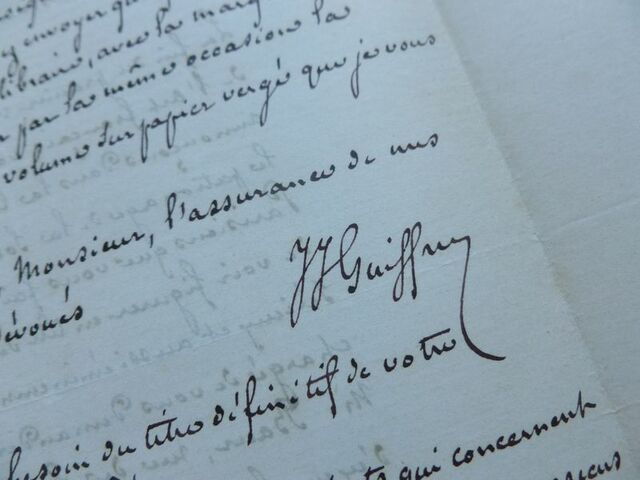 envoyer que
libraire, avec la marq
par la même occasion la
volume sur papier vergé que je vous
Monsieur, l'assurance de mes
dévoués
JJ Guiffrey
besoin du titre définitif de votre
qui concernent